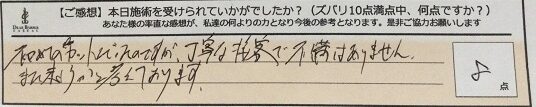 DEAR BONNA
【ご感想】本日施術を受けられていかがでしたか？（ズバリ10点満点中、何点ですか？）
あなた様の率直な感想が、私達の何よりの力となり今後の参考となります。是非ご協力お願いします
初めてのカットしてもらったのですが、丁寧な接客で不満はありません。
また来ようかと考えております。
点